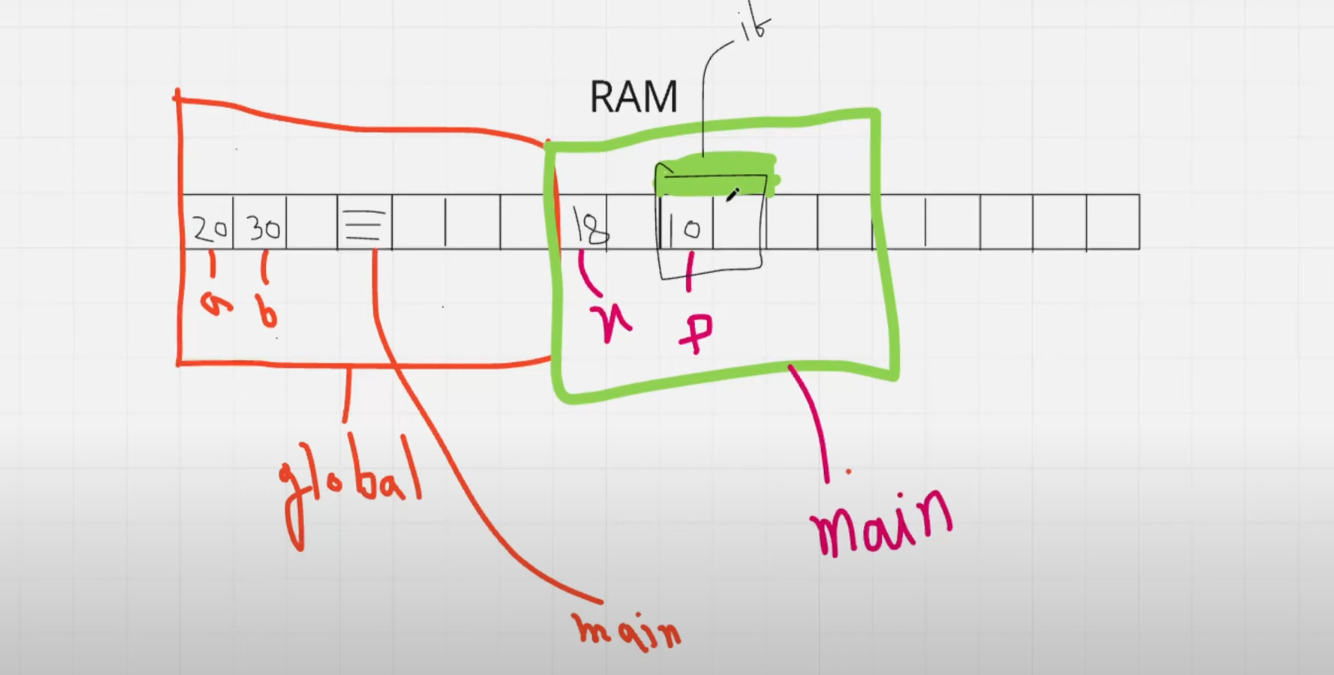 if
RAM
20 30 18 10
a b x p
global
main
main